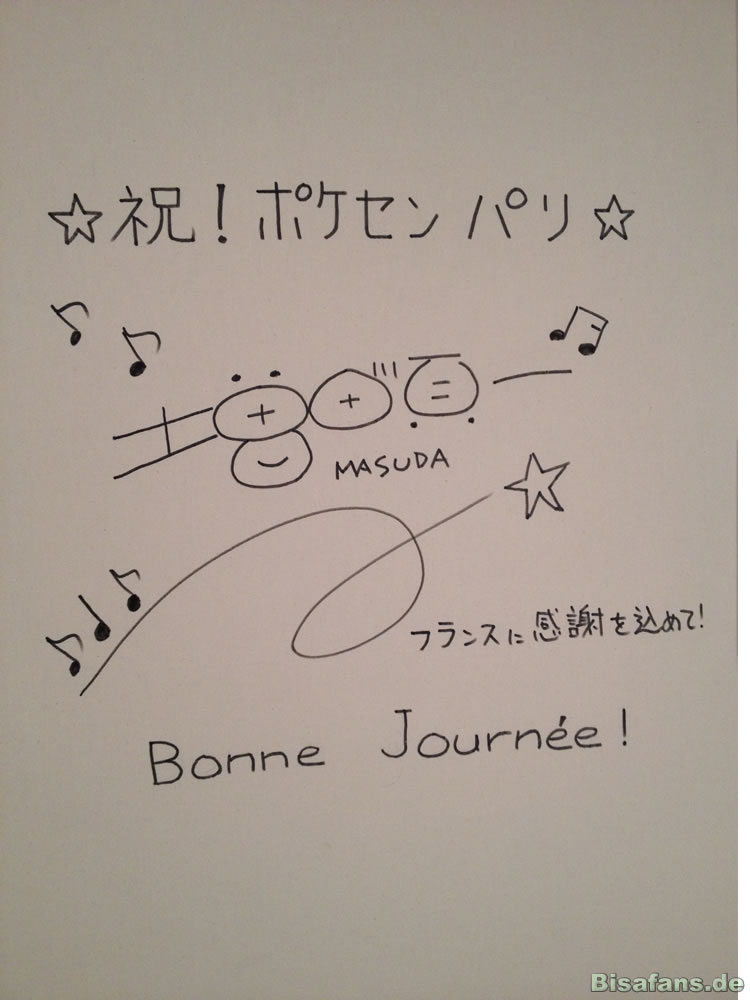 ☆祝！ポケセン パリ☆
MASUDA
フランスに感謝を込めて！
Bonne Journée !
Bisafans.de